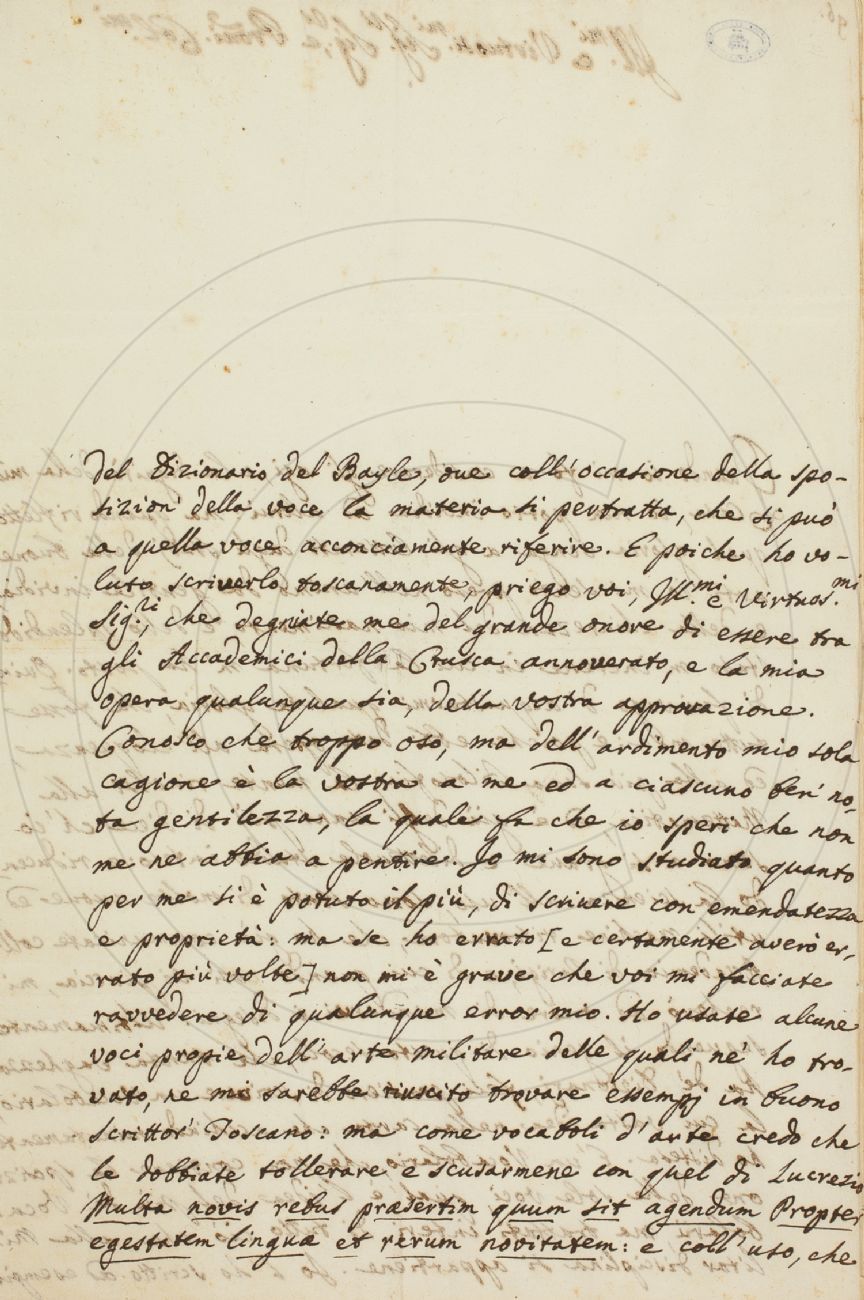 del Dizionario del Bayle, ove coll'occasione della spo-
sizion' della voce la materia si pertratta, che si può
a quella voce acconciamente riferire. E poiche ho vo-
luto scriverlo toscanamente, priego voi, Ill.mi e Virtuos.mi
Sig.ri, che degniate me del grande onore di essere tra
gli Accademici della Crusca annoverato, e la mia
opera qualunque sia, della vostra approvazione.
Conosco che troppo oso, ma dell'ardimento mio sola
cagione è la vostra a me ed a ciascuno ben' no-
ta gentilezza, la quale fa che io speri che non
me ne abbia a pentire. Io mi sono studiato quanto
per me si è potuto il più, di scrivere con emendatezza
e proprietà: ma se ho errato [e certamente averò er-
rato più volte] non mi è grave che voi mi facciate
ravvedere di qualunque error mio. Ho usate alcune
voci propie dell'arte militare delle quali nè ho tro-
vato, ne mi sarebbe riuscito trovare essempj in buono
scrittor' Toscano: ma come vocaboli d'arte credo che
le dobbiate tollerare e scusarmene con quel di Lucrezio
Multa novis rebus præsertim quum sit agendum Propter
egestatem linguæ et rerum novitatem: e coll'uso, che